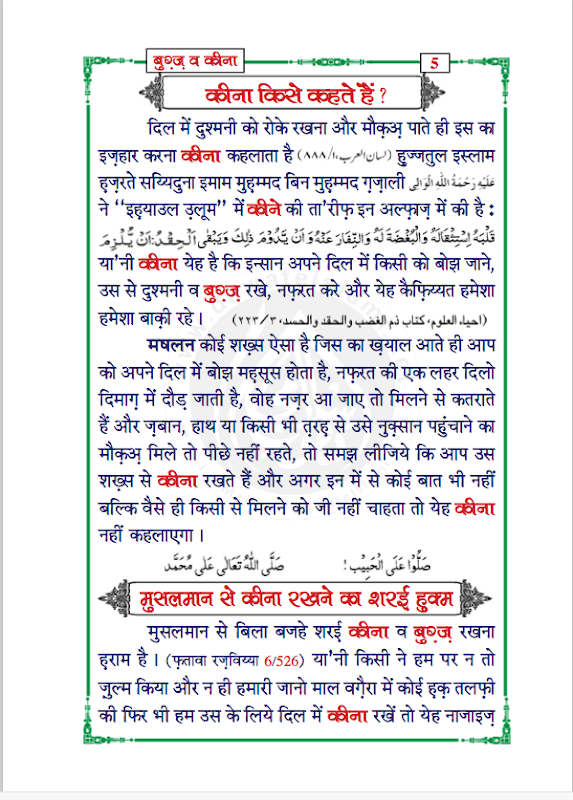 बुग़्ज़ व कीना
5
कीना किसे कहते हैं ?
दिल में दुश्मनी को रोके रखना और मौक़अ़ पाते ही इस का
इज़हार करना कीना कहलाता है (لسان العرب،١/٨٨٨) हुज्जतुल इस्लाम
हज़रते सय्यिदुना इमाम मुह़म्मद बिन मुह़म्मद ग़ज़ाली عَلَيْهِ رَحْمَةُ اللهِ الْوَالِى
ने “इह़याउल उ़लूम” में कीने की ता'रीफ़ इन अल्फ़ाज़ में की है :
اَلْحِقْدُ:اَنْ يَّلْزَمَ قَلْبَهُ اِسْتِثْقَالَهُ وَالْبُغْضَةَ لَهُ وَالنِّفَارَ عَنْهُ وَاَنْ يَّدُوْمَ ذٰلِكَ وَيَبْقٰى
या'नी कीना येह है कि इन्सान अपने दिल में किसी को बोझ जाने,
उस से दुश्मनी व बुग़्ज़ रखे, नफ़रत करे और येह कैफ़िय्यत हमेशा
हमेशा बाक़ी रहे । (احياء العلوم، كتاب ذم الغضب والحقد والحسد،٣/٢٢٣)
मषलन कोई शख़्स ऐसा है जिस का ख़याल आते ही आप
को अपने दिल में बोझ महसूस होता है, नफ़रत की एक लहर दिलो
दिमाग़ में दौड़ जाती है, वोह नज़र आ जाए तो मिलने से कतराते
हैं और ज़बान, हाथ या किसी भी त़रह़ से उसे नुक़्सान पहुंचाने का
मौक़अ़ मिले तो पीछे नहीं रहते, तो समझ लीजिये कि आप उस
शख़्स से कीना रखते हैं और अगर इन में से कोई बात भी नहीं
बल्कि वैसे ही किसी से मिलने को जी नहीं चाहता तो येह कीना
नहीं कहलाएगा ।
صَلُّوْا عَلَى الْحَبِيْب! صَلَّى اللهُ تَعَالٰى عَلٰى مُحَمَّد
मुसलमान से कीना रखने का शरई हुक्म
मुसलमान से बिला बजहे शरई कीना व बुग़्ज़ रखना
ह़राम है । (फ़तावा रज़विय्या 6/526) या'नी किसी ने हम पर न तो
ज़ुल्म किया और न ही हमारी जानो माल वग़ैरा में कोई ह़क़ तलफ़ी
की फिर भी हम उस के लिये दिल में कीना रखें तो येह नाजाइज़